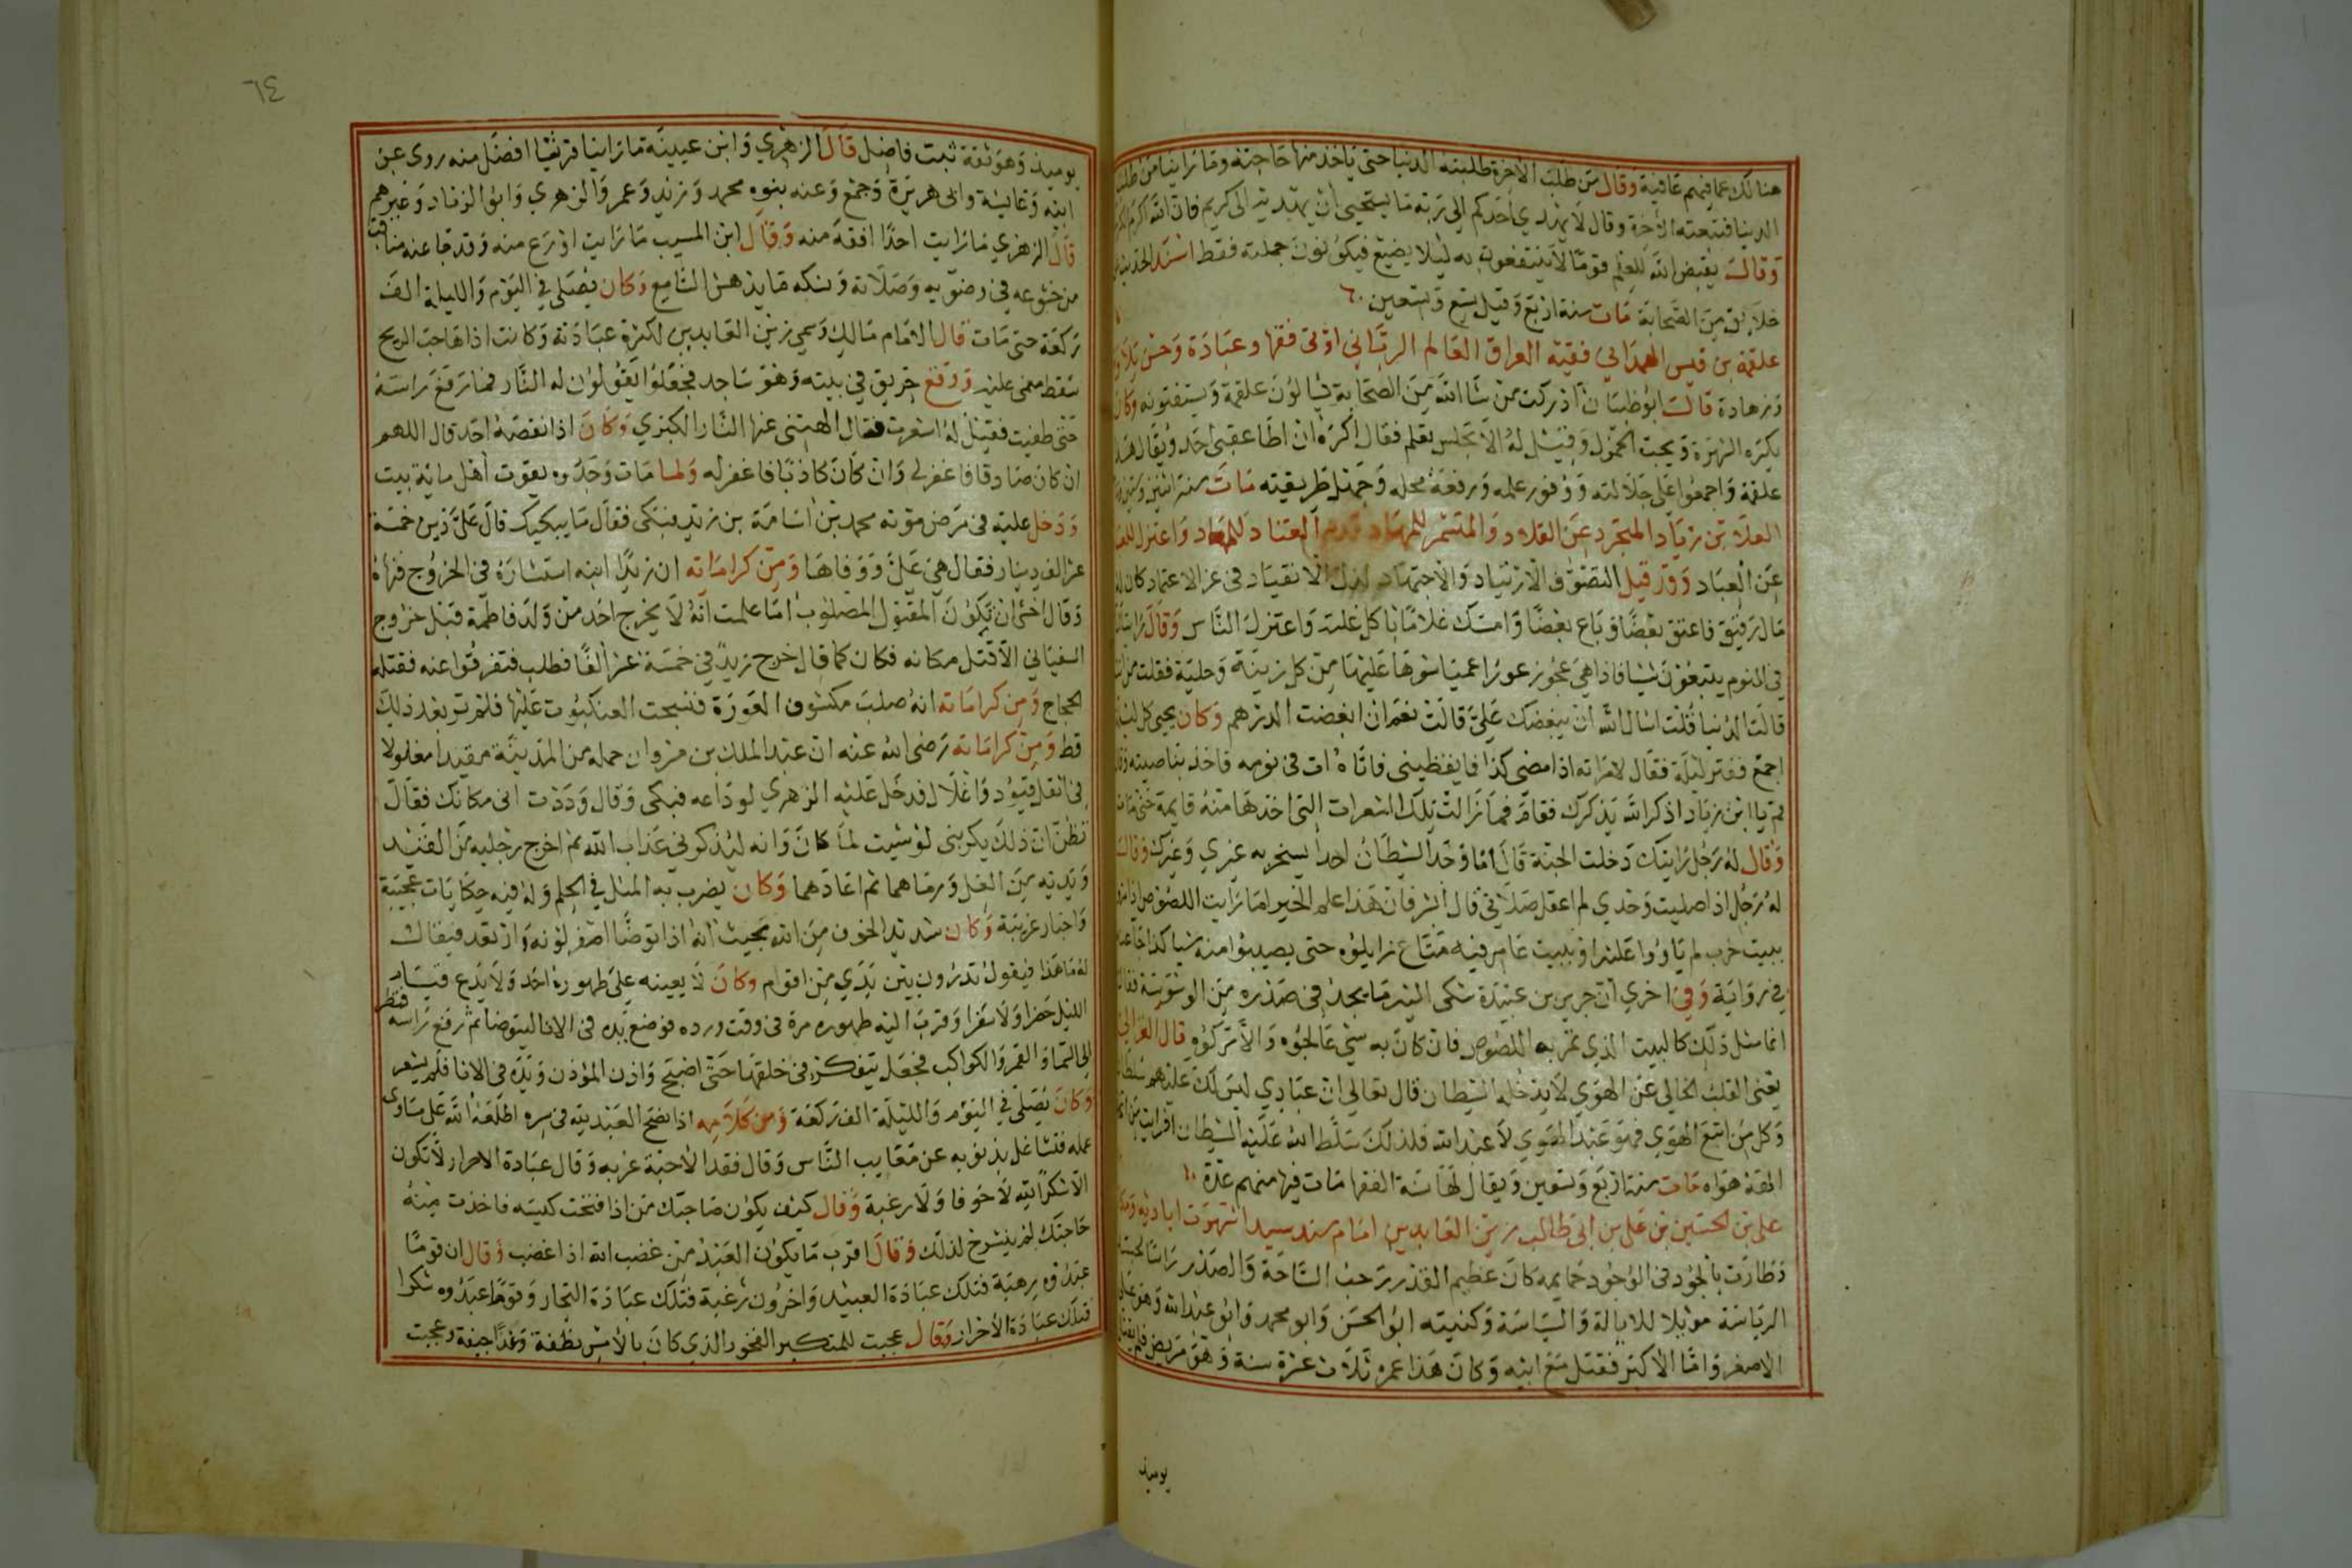 هنالك عما فيهم عافية وقال من طلب الاخرة طلبته الدنيا حتى ياخذ منها حاجته وما راينا من طلب
الدنيا فتبعته الاخرة وقال لا يهدي احدكم الى ربه ما يستحيى ان يهديه الى كريم فان الله اكرم
وقال يقبض الله للعلم قوما لا ينتفعون به ليلا يضيع فيكونون حملته فقط اسند الحديث
خلايق من الصحابة مات سنة اربع وقيل سبع وتسعين
علقمة بن قيس الهمداني فقيه العراق العالم الرباني اوتى فقها وعبادة وحسن تلاوة
وزهادة قال ابو ظبيان ادركت من شا الله من الصحابة يسالون علقمة ويستفتونه وكان
يكره الشهرة ويحب الخمول وقيل له الا تجلس بعلم فقال اكره ان اطا عقبى احد ويقال هذا
علقمة واجمعوا على جلالته ووفور علمه ورفعة محله وجميل طريقيته مات سنة اثنين وستين
العلا بن زياد المتجرد عن التلاد والمتشمر للمهاد العتاد للمعاد واعتزل
عن العباد وقد قيل التصوف الارتياد والاجتهاد لذل الانقياد فى عز الاعتماد كان له
مال رقيق فاعتق بعضا وباع بعضا وامسك غلاما ياكل غلته واعتزل الناس وقال رايت الناس
في النوم يتبعون شيا فاذا هي عجوز عورا عميا شوها عليها من كل زينة وحلية فقلت من انت
قالت الدنيا قلت اسال الله ان يبغضك على قالت نعم ان ابغضت الدرهم وكان يحيى كل ليلة
اجمع ففتر ليلة فقال لامراته اذا مضى كذا فايقظيني فاتاه ات فى نومه فاخذ بناصيته وقال
قم يا ابن زياد اذكر الله يذكرك فقام فما زالت تلك الشعرات التى اخذها منه قايمة حتى مات
وقال له رجل رايتك دخلت الجنة قال اما وجد الشيطان احدا يسخر به غيري وغيرك وقال
له رجل اذا صليت وحدي لم اعقل صلاتى قال ابشر فان هذا علم الخير اما رايت اللصوص اذا مروا
ببيت خرب لم ياووا عليه او ببيت عامر فيه متاع زايلوه حتى يصيبوا منه شيا كذا جا عنه
في رواية وفى اخري ان جرير بن عبيدة شكى اليه ما يجد فى صدره من الوسوسة فقال
انما مثل ذلك كالبيت الذي تمر به اللصوص فان كان به شي عالجوه والا تركوه قال الغزالى
يعنى القلب الخالي عن الهوي لا يدخله الشيطان قال تعالى ان عبادي ليس لك عليهم سلطان
وكل من اتبع الهوي فهو عبد الهوي لا عبد الله فلذلك سلط الله عليه الشيطان افرايت من اتخذ
الهه هواه مات سنة اربع وتسعين ويقال لها سنة الفقها مات فيها منهم عدة
على بن الحسين بن على بن ابى طالب زين العابدين امام سند سيد اشتهرت اياديه
وطارت بالجود فى الوجود حمايمه كان عظيم القدر رحب الساحة والصدر راسا لجسد
الرياسة موئلا للايالة والسياسة وكنيته ابو الحسن وابو محمد وابو عبد الله وهو على
الاصغر واما الاكبر فقتل مع ابيه وكان هذا عمره ثلاث عشرة سنة وهو مريض فلم يقاتل
يوميذ
٦٤
يوميذ وهو ثقة ثبت فاضل قال الزهري وابن عيينة ما راينا قرشيا افضل منه روى عن
ابيه وعايشة وابى هريرة وجمع وعنه بنوه محمد وزيد وعمر والزهري وابو الزناد وغيرهم
قال الزهري ما رايت احدا افقه منه وقال ابن المسيب ما رايت اورع منه وقد جا عنه من
من خشوعه في وضويه وصلاته ونسكه ما يدهش السامع وكان يصلى في اليوم والليلة الف
ركعة حتى مات قال الامام مالك وسمى زين العابدين لكثرة عبادته وكانت اذا هاجت الريح
سقط مغمى عليه ووقع حريق في بيته وهو ساجد فجعلوا يقولون له النار فما رفع راسه
حتى طفيت فقيل له اشعرت فقال الهتنى عنها النار الكبري وكان اذا نقصه احد قال اللهم
ان كان صادقا فاغفر لي وان كان كاذبا فاغفر له ولما مات وجدوه يقوت اهل ماية بيت
ودخل عليه فى مرض موته محمد بن اسامة بن زيد فبكى فقال ما يبكيك قال على دين خمسة
عشر الف دينار فقال هي على ووفاها ومن كراماته ان زيدا ابنه استشاره فى الخروج فنهاه
وقال اخشى ان تكون المقتول المصلوب اما علمت انه لا يخرج احد من ولد فاطمة قبل خروج
السفياني الا قتل مكانه فكان كما قال خرج زيد في خمسة عشر الفا فطلب فتفرقوا عنه فقتله
الحجاج ومن كراماته انه صلب مكشوف العورة فنسجت العنكبوت عليها فلم تر بعد ذلك
قط ومن كراماته رضى الله عنه ان عبد الملك بن مروان حمله من المدينة مقيدا مغلولا
فى اثقل قيود واغلال فدخل عليه الزهري لوداعه فبكى وقال وددت انى مكانك فقال
تظن ان ذلك يكربنى لو شيت لما كان وانه ليذكرني عذاب الله ثم اخرج رجليه من القيد
ويديه من الغل ورماهما ثم اعادهما وكان يضرب به المثل في الحلم وله فيه حكايات عجيبة
واخبار غريبة وكان شديد الخوف من الله بحيث انه اذا توضا اصفر لونه وارتعد فيقال
له ما هذا فيقول تدرون بين يدي من اقوام وكان لا يعينه على طهوره احد ولا يدع قيام
الليل حضرا ولا سفرا وقرب اليه طهوره مرة فى وقت ورده فوضع يده فى الانا ليتوضا ثم رفع راسه فنظر
الى السما والقمر والكواكب فجعل يتفكر فى خلقها حتى اصبح واذن المؤذن ويده فى الانا فلم يشعر
وكان يصلى في اليوم والليلة الف ركعة ومن كلامه اذا نصح العبد لله فى سره اطلعه الله على مساوى
عمله فتشاغل بذنوبه عن معايب الناس وقال فقد الاحبة غربه وقال عبادة الاحرار لا تكون
الا شكرا لله لا خوفا ولا رغبة وقال كيف يكون صاحبك من اذا فتحت كيسه فاخذت منه
حاجتك لم ينشرح لذلك وقال اقرب ما يكون العبد من غضب الله اذا غضب وقال ان قوما
عبدوه رهبة فتلك عبادة العبيد واخرون رغبة فتلك عبادة التجار وقوما عبدوه شكرا
فتلك عبادة الاحرار وقال عجبت للمتكبر الفخور الذي كان بالامس نطفة وغدا جيفة وعجبت